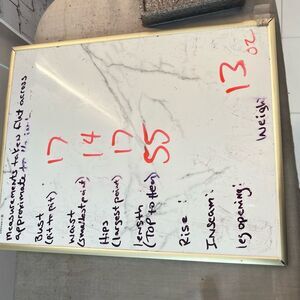 measurements taken flat across
approximate to the
Bust 17
(Pit to pit):
waist 14
(smallest point)
Hips 17
(largest point)
length 55
(TOP to Hem)
Rise:
Inseam:
leg opening:
Weigh 13 oz